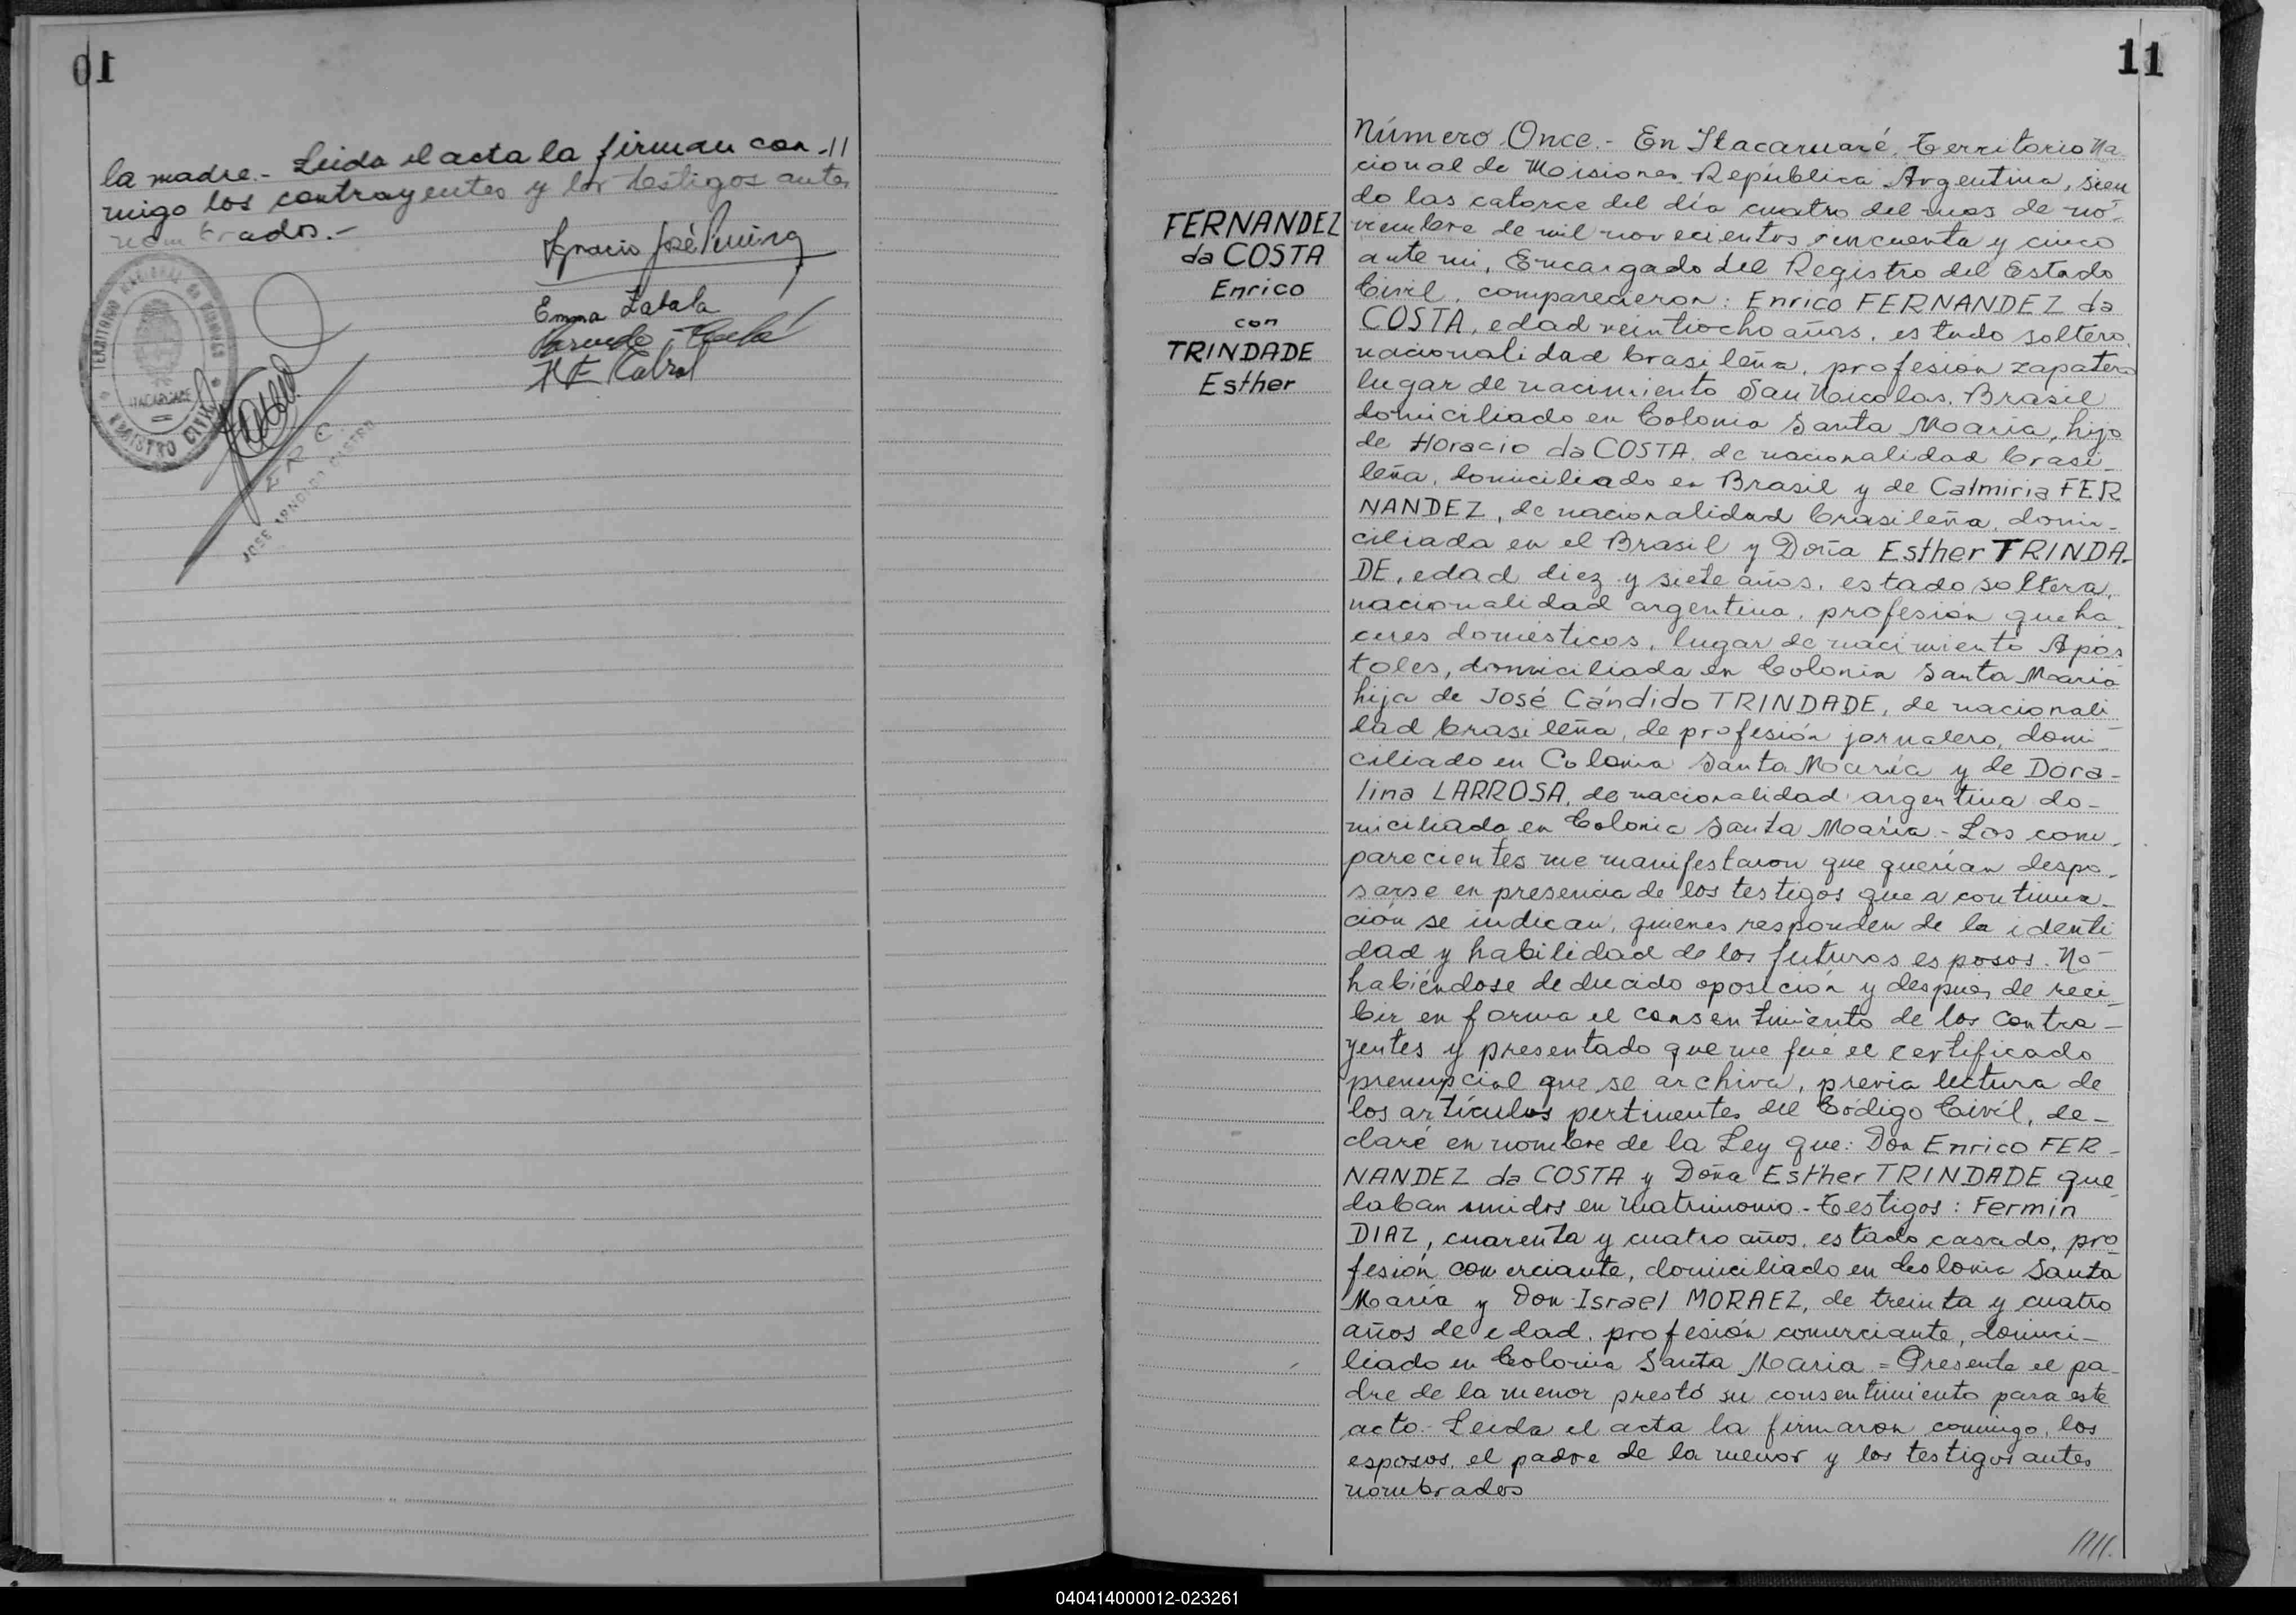 10
la madre.- Leida el acta la firman con -11
migo los contrayentes y los testigos antes
nombrados.-
Emma Zabala
H E Cabral
TERRITORIO NACIONAL DE MISIONES
ITACARUARE
REGISTRO CIVIL
E R C
JOSE ARNOLDO CASTRO
11
FERNANDEZ
da COSTA
Enrico
con
TRINDADE
Esther
Número Once.- En Itacaruaré, Territorio Na-
cional de Misiones, República Argentina, sien
do las catorce del día cuatro del mes de no-
viembre de mil novecientos cincuenta y cinco
ante mi, Encargado del Registro del Estado
Civil, comparecieron: Enrico FERNANDEZ da
COSTA, edad veintiocho años, estado soltero,
nacionalidad brasileña, profesión zapatero
lugar de nacimiento San Nicolas, Brasil
domiciliado en Colonia Santa María, hijo
de Horacio da COSTA, de nacionalidad brasi-
leña, domiciliado en Brasil y de Calmiria FER
NANDEZ, de nacionalidad brasileña, domi-
ciliada en el Brasil y Doña Esther TRINDA-
DE, edad diez y siete años, estado soltera,
nacionalidad argentina, profesión queha-
ceres domésticos, lugar de nacimiento Após
toles, domiciliada en Colonia Santa María
hija de José Cándido TRINDADE, de nacionali
dad brasileña, de profesión jornalero, domi-
ciliado en Colonia Santa María y de Dora-
lina LARROSA, de nacionalidad argentina do-
miciliada en Colonia Santa María.- Los com-
parecientes me manifestaron que querían despo-
sarse en presencia de los testigos que a continua-
ción se indican, quienes responden de la identi
dad y habilidad de los futuros esposos. No
habiéndose deducido oposición y después de reci-
bir en forma el consentimiento de los contra-
yentes y presentado que me fué el certificado
prenupcial que se archiva, previa lectura de
los artículos pertinentes del Código Civíl, de-
claré en nombre de la Ley que: Don Enrico FER-
NANDEZ da COSTA y Doña Esther TRINDADE que
daban unidos en matrimonio.- Testigos: Fermin
DIAZ, cuarenta y cuatro años, estado casado, pro
fesión comerciante, domiciliado en Colonia Santa
María y Don Israel MORAEZ, de treinta y cuatro
años de edad, profesión comerciante, domici-
liado en Colonia Santa Maria = Presente el pa-
dre de la menor prestó su consentimiento para este
acto.- Leida el acta la firmaron conmigo, los
esposos, el padre de la menor y los testigos antes
nombrados
////.
040414000012-023261